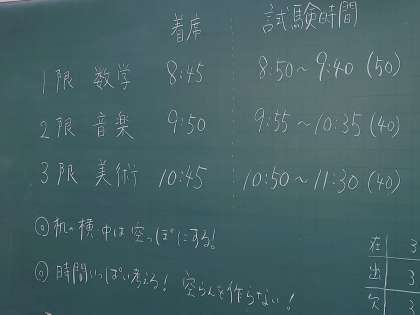 着席 試験時間
1限 数学 8:45 8:50〜9:40 (50)
2限 音楽 9:50 9:55〜10:35 (40)
3限 美術 10:45 10:50〜11:30 (40)
◎机の横・中は空っぽにする!
◎時間いっぱい考える! 空らんを作らない!
在 3
出 3
欠